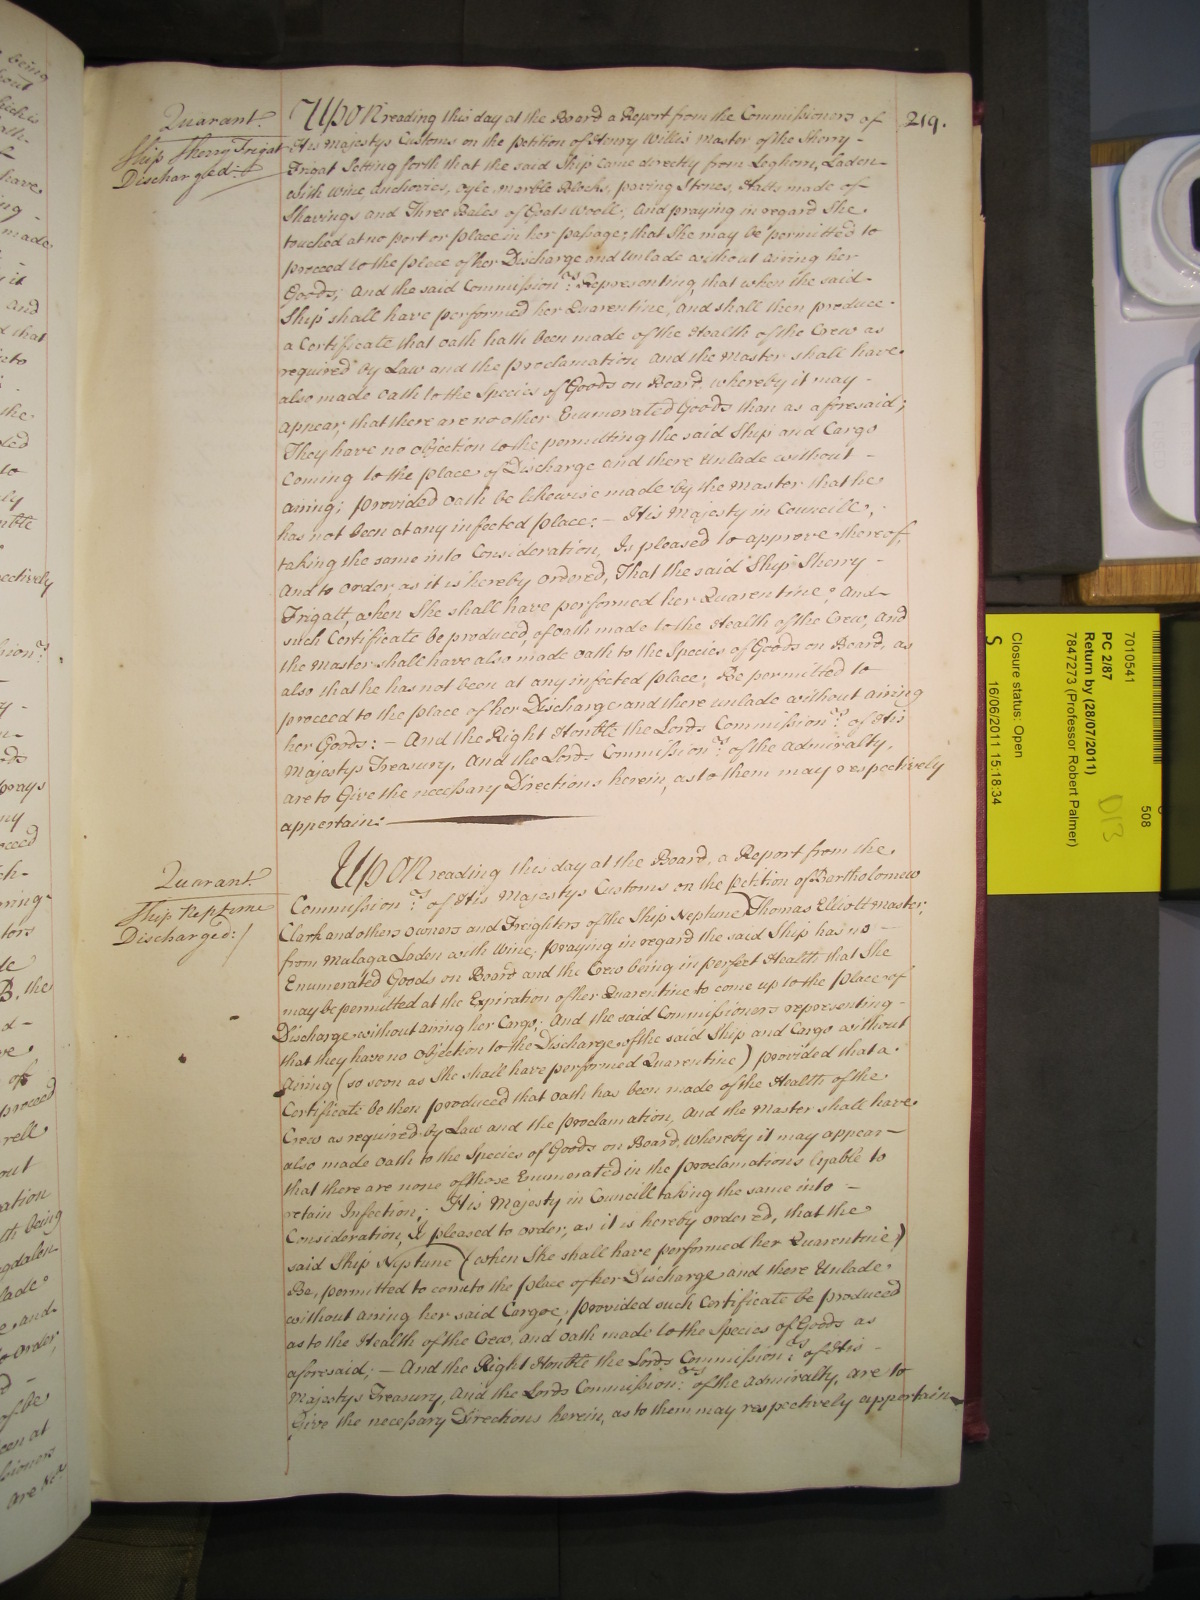 219.
Quarant:
Ship Sherry Frigat
Discharged:
Upon reading this day at the Board a Report from the Commissioners of
His Majestys Customs on the Petition of Henry Willis Master of the Sherry -
Frigat Setting forth that the said Ship came directly from Leghorn, Laden
with Wine, Anchovies, oyle, Marble Blocks, paving Stones, Hatts made of
Shavings and Three Bales of Goats Wooll; And praying in regard She
touched at no port or place in her passage; that She may be permitted to
proceed to the place of her Discharge and Unlade without airing her
Goods; And the said Commission:rs Representing, that when the said -
Ship shall have performed her Quarentine, and shall then produce
a Certificate that oath hath been made of the Health of the Crew as
required by Law and the proclamation and the Master shall have
also made oath to the Species of Goods on Board, whereby it may -
appear, that there are no other Enumerated Goods than as aforesaid;
They have no objection to the permitting the said Ship and Cargo
Coming to the place of Discharge and there Unlade without -
airing; provided oath be likewise made by the Master that he
has not been at any infected place: - His Majesty in Councill,
taking the same into Consideration, Is pleased to approve thereof,
And to order, as it is hereby ordered, That the said Ship Sherry -
Frigatt, when She shall have performed her Quarentine, And
such Certificate be produced, of oath made to the Health of the Crew, And
the Master shall have also made oath to the Species of Goods on Board, as
also that he has not been at any infected place; Be permitted to
proceed to the place of her Discharge and there unlade without airing
her Goods: - And the Right Honble the Lords Commission:rs of His
Majestys Treasury, And the Lords Commission:rs of the Admiralty,
are to Give the necessary Directions herein, as to them may respectively
appertain:
Quarant:
Ship Neptune
Discharged:/
Upon reading this day at the Board, a Report from the
Commission:rs of His Majestys Customs on the petition of Bartholomew
Clark and others owners and Freighters of the Ship Neptune Thomas Elliott Master,
from Malaga Laden with Wine; praying in regard the said Ship has no -
Enumerated Goods on Board and the Crew being in perfect Health that She
may be permitted at the Expiration of her Quarentine to come up to the place of
Discharge without airing her Cargo; And the said Commissioners representing -
that they have no objection to the Discharge of the said Ship and Cargo without
Airing (so soon as She shall have performed Quarentine) provided that a
Certificate be then produced that oath has been made of the Health of the
Crew as required by Law and the proclamation, And the Master shall have
also made oath to the Species of Goods on Board, whereby it may appear -
that there are none of those Enumerated in the proclamations lyable to
retain Infection; His Majesty in Councill taking the same into -
Consideration, Is pleased to order, as it is hereby ordered, that the
said Ship Neptune (when She shall have performed her Quarentine)
Be, permitted to come to the place of her Discharge and there Unlade
without airing her said Cargoe, provided such Certificate be produced
as to the Health of the Crew, and oath made to the Species of Goods as
aforesaid; - And the Right Honble the Lords Commission:rs of His -
Majestys Treasury, And the Lords Commission:rs of the Admiralty, are to
Give the necessary Directions herein, as to them may respectively appertain
7010541
508
PC 2/87
Return by (28/07/2011)
7847273 (Professor Robert Palmer)
D13
Closure status: Open
S
16/06/2011 15:18:34